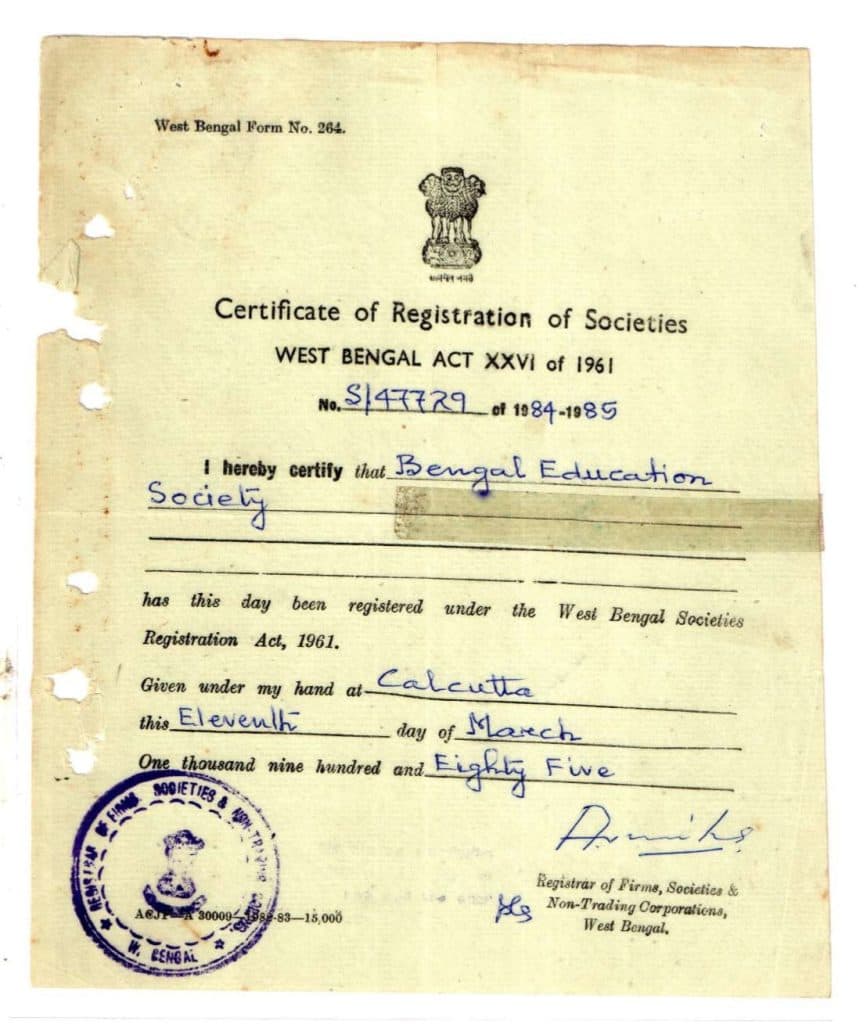 West Bengal Form No. 264.
सत्यमेव जयते
Certificate of Registration of Societies
WEST BENGAL ACT XXVI of 1961
No. S/47729 of 1984-1985
I hereby certify that Bengal Education
Society
has this day been registered under the West Bengal Societies
Registration Act, 1961.
Given under my hand at Calcutta
this Eleventh day of March
One thousand nine hundred and Eighty Five
Registrar of Firms, Societies &
Non-Trading Corporations,
West Bengal.
REGISTRAR OF FIRMS, SOCIETIES & NON-TRADING
W. BENGAL
30009 83—15,000